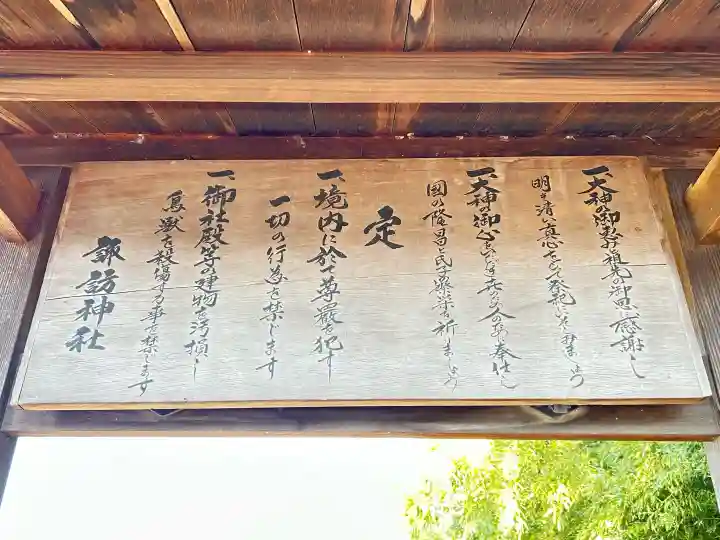 一、大神の御恵み祖先の御恩に感謝し
明き清き真心をもって祭祀にいそしみましょう
一、大神の御心をいただき世のため人のために奉仕し
国の隆昌と民子の栄を祈りましょう
定
一、境内に於て尊厳を犯す
一切の行為を禁じます
一、御社殿等の建物を汚損し
鳥獣を殺傷する事を禁じます
諏訪神社